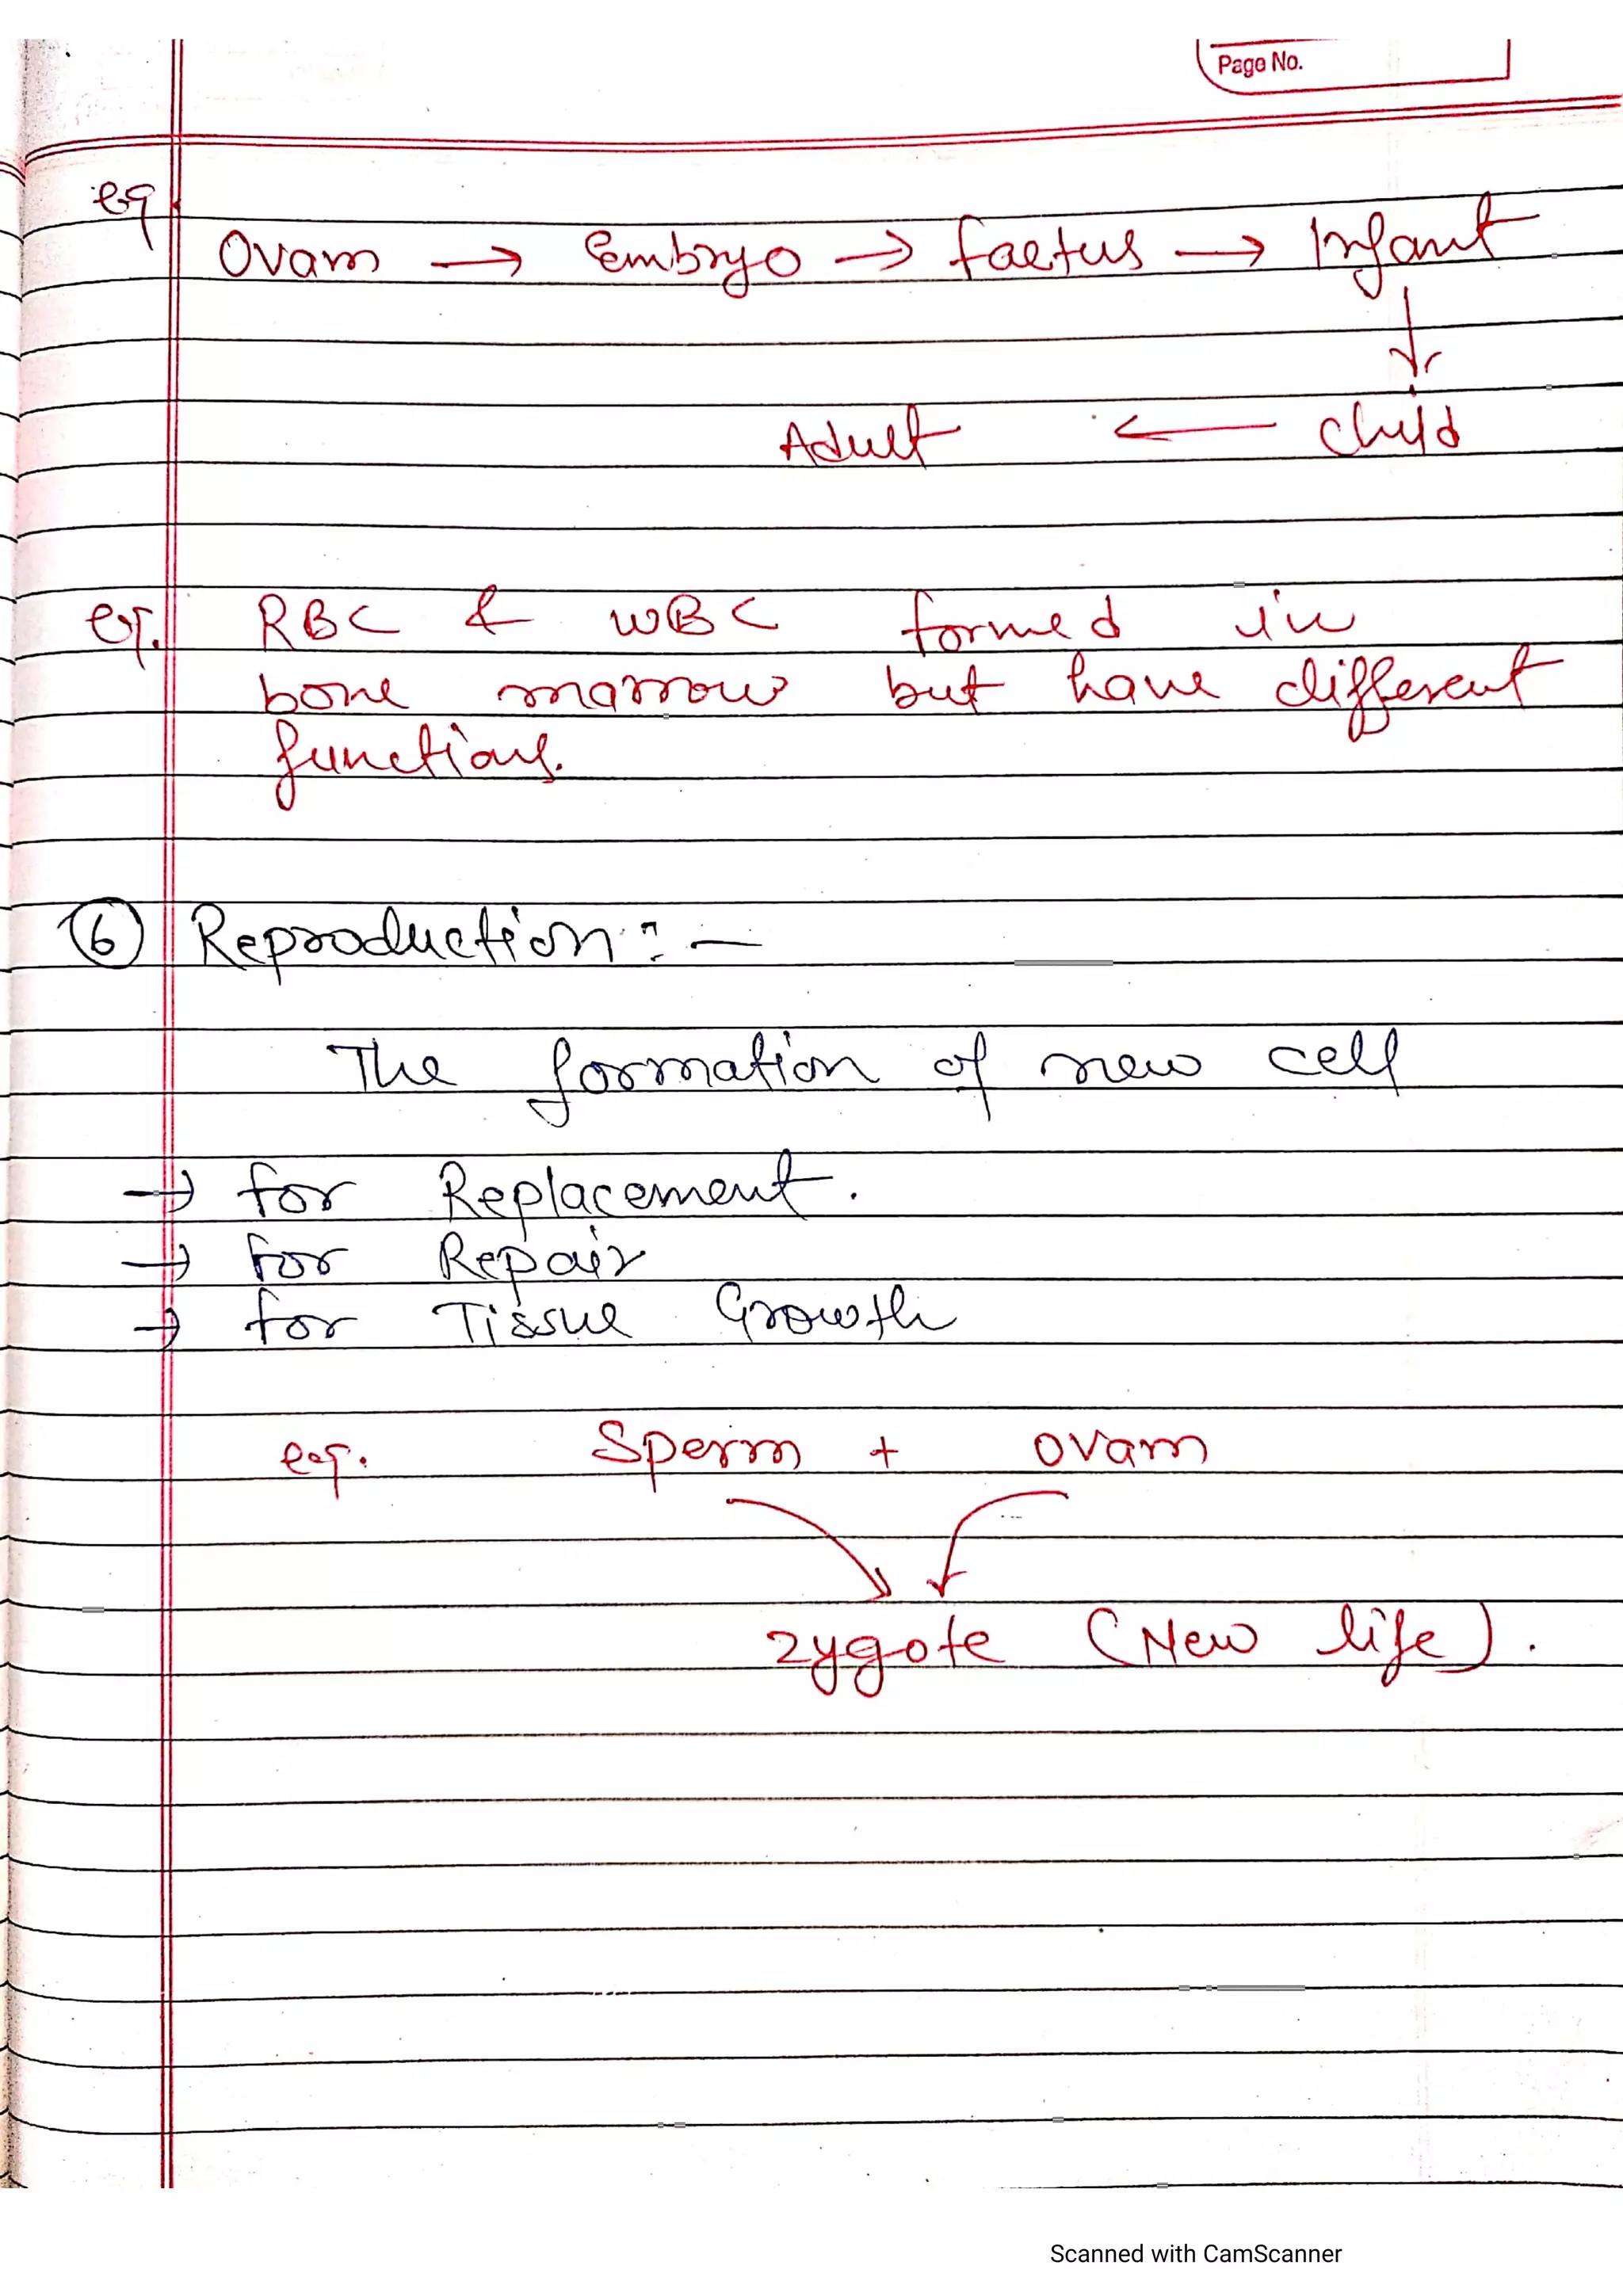 Page No.
eg.
Ovam → Embryo → faetus → Infant
↓
Adult ← child
eg. RBC & WBC formed in
bone marrow but have different
functions.
⑥ Reproduction :-
The formation of new cell
→ for Replacement.
→ for Repair
→ for Tissue Growth
eg. Sperm + ovam
zygote (New life).
Scanned with CamScanner